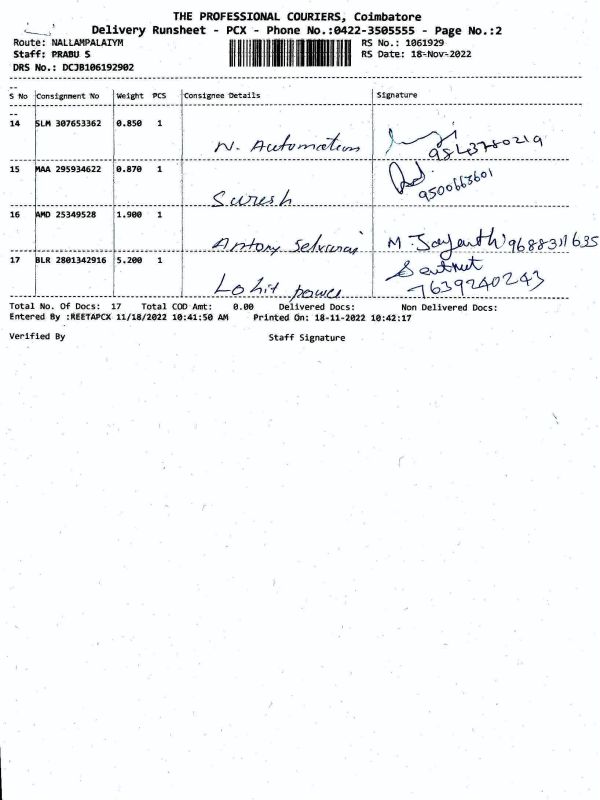 THE PROFESSIONAL COURIERS, Coimbatore
Delivery Runsheet - PCX - Phone No.:0422-3505555 - Page No.:2
Route: NALLAMPALAIYM RS No.: 1061929
Staff: PRABU S RS Date: 18-Nov-2022
DRS No.: DCJB106192902
S No Consignment No Weight PCS Consignee Details Signature
14 SLM 307653362 0.850 1
N. Automation
15 MAA 295934622 0.870 1
Suresh 9500663601
16 AMD 25349528 1.900 1
Antony Selvaraj M. Jayanthi 9688311635
17 BLR 2801342916 5.200 1
Lohit power 7639240243
Total No. Of Docs: 17 Total COD Amt: 0.00 Delivered Docs: Non Delivered Docs:
Entered By :REETAPCX 11/18/2022 10:41:50 AM Printed On: 18-11-2022 10:42:17
Verified By Staff Signature